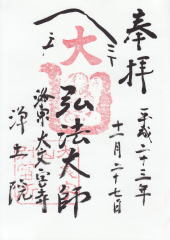 奉拝
平成二十三年
十一月二十七日
大
弘法大師
洛東 大文字寺
浄土院